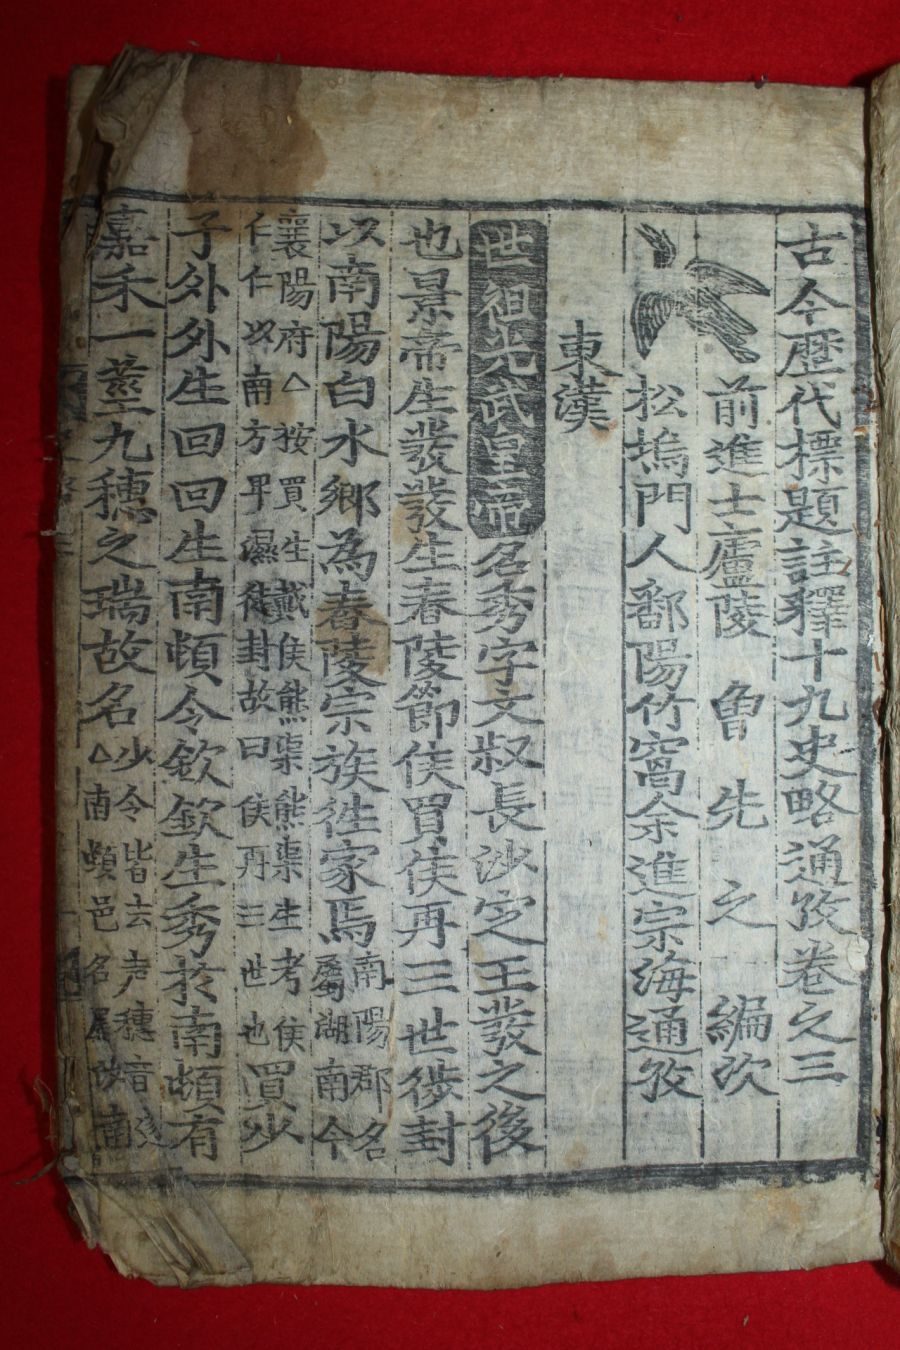 古今歷代標題註釋十九史略通攷卷之三
前進士廬陵 魯 先 之 編次
松塢門人鄱陽竹窩余進宗海通攷
東漢
世祖光武皇帝名秀字文叔長沙定王發之後
也景帝生發發生舂陵節侯買侯再三世徙封
以南陽白水鄉為舂陵宗族徃家焉南陽郡名
屬湖南今
襄陽府△按買生戴侯熊渠熊渠生考侯
仁仁以南方卑濕徙封故曰侯再三世也買少
子外外生回回生南頓令欽欽生秀於南頓有
嘉禾一莖九穗之瑞故名少令皆去声穗音遂
△南頓邑名屬汝南